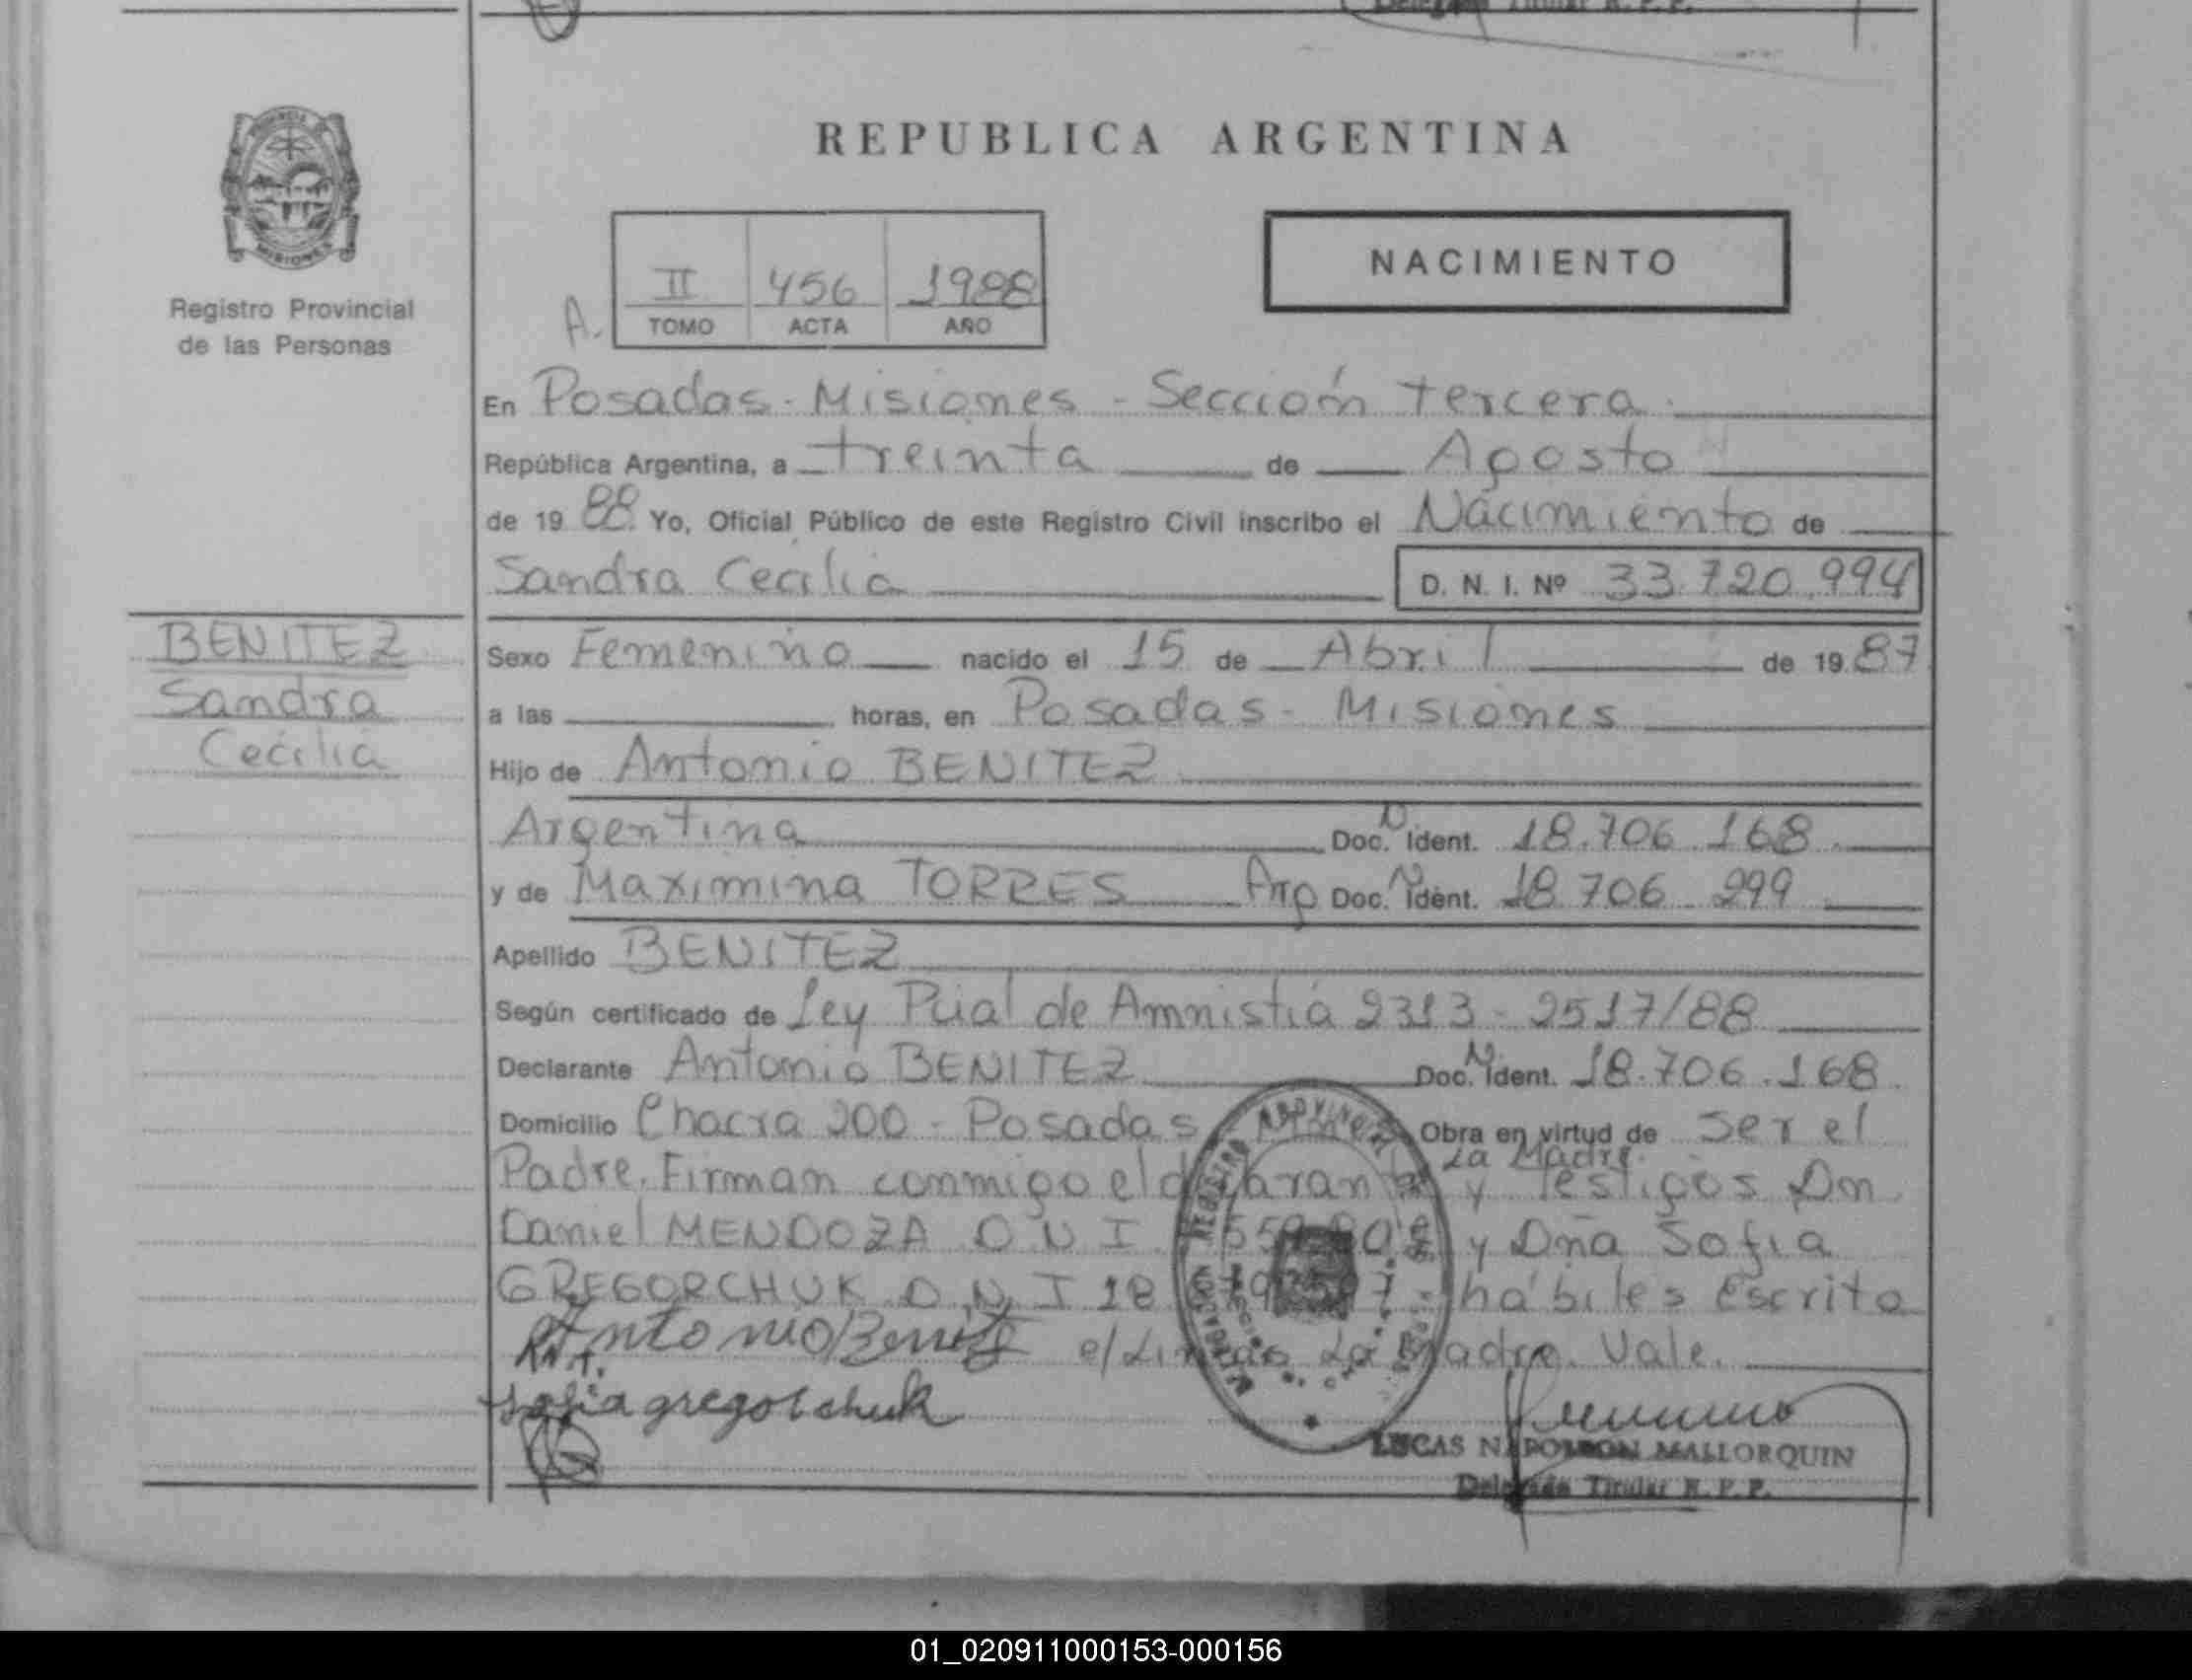 REPUBLICA ARGENTINA
PROVINCIA
MISIONES
Registro Provincial
de las Personas
NACIMIENTO
A. II 456 1988
TOMO ACTA AÑO
En Posadas - Misiones - Sección tercera
República Argentina, a treinta de Agosto
de 19 88. Yo, Oficial Público de este Registro Civil inscribo el Nacimiento de
Sandra Cecilia D. N. I. Nº 33.720.994
BENITEZ
Sandra
Cecilia
Sexo Femenino nacido el 15 de Abril de 19 87
a las horas, en Posadas - Misiones
Hijo de Antonio BENITEZ
Argentina Doc. N. Ident. 18.706.168
y de Maximina TORRES Arg Doc. N. Ident. 18.706.299
Apellido BENITEZ
Según certificado de Ley Pcial de Amnistia 2313 - 2517/88
Declarante Antonio BENITEZ Doc. N. Ident. 18.706.168
Domicilio Chacra 200 - Posadas Obra en virtud de ser el
La Madre
Padre. Firman conmigo el y Testigos Dn
Daniel MENDOZA D N I y Dña Sofia
GREGORCHUK D.N.I 18 hábiles Escrito
Antonio Benitez e/Lineas La Madre. Vale.
sofia gregorchuk
LUCAS NAPOLEON MALLORQUIN
Delegado Titular R. P. P.
01_020911000153-000156